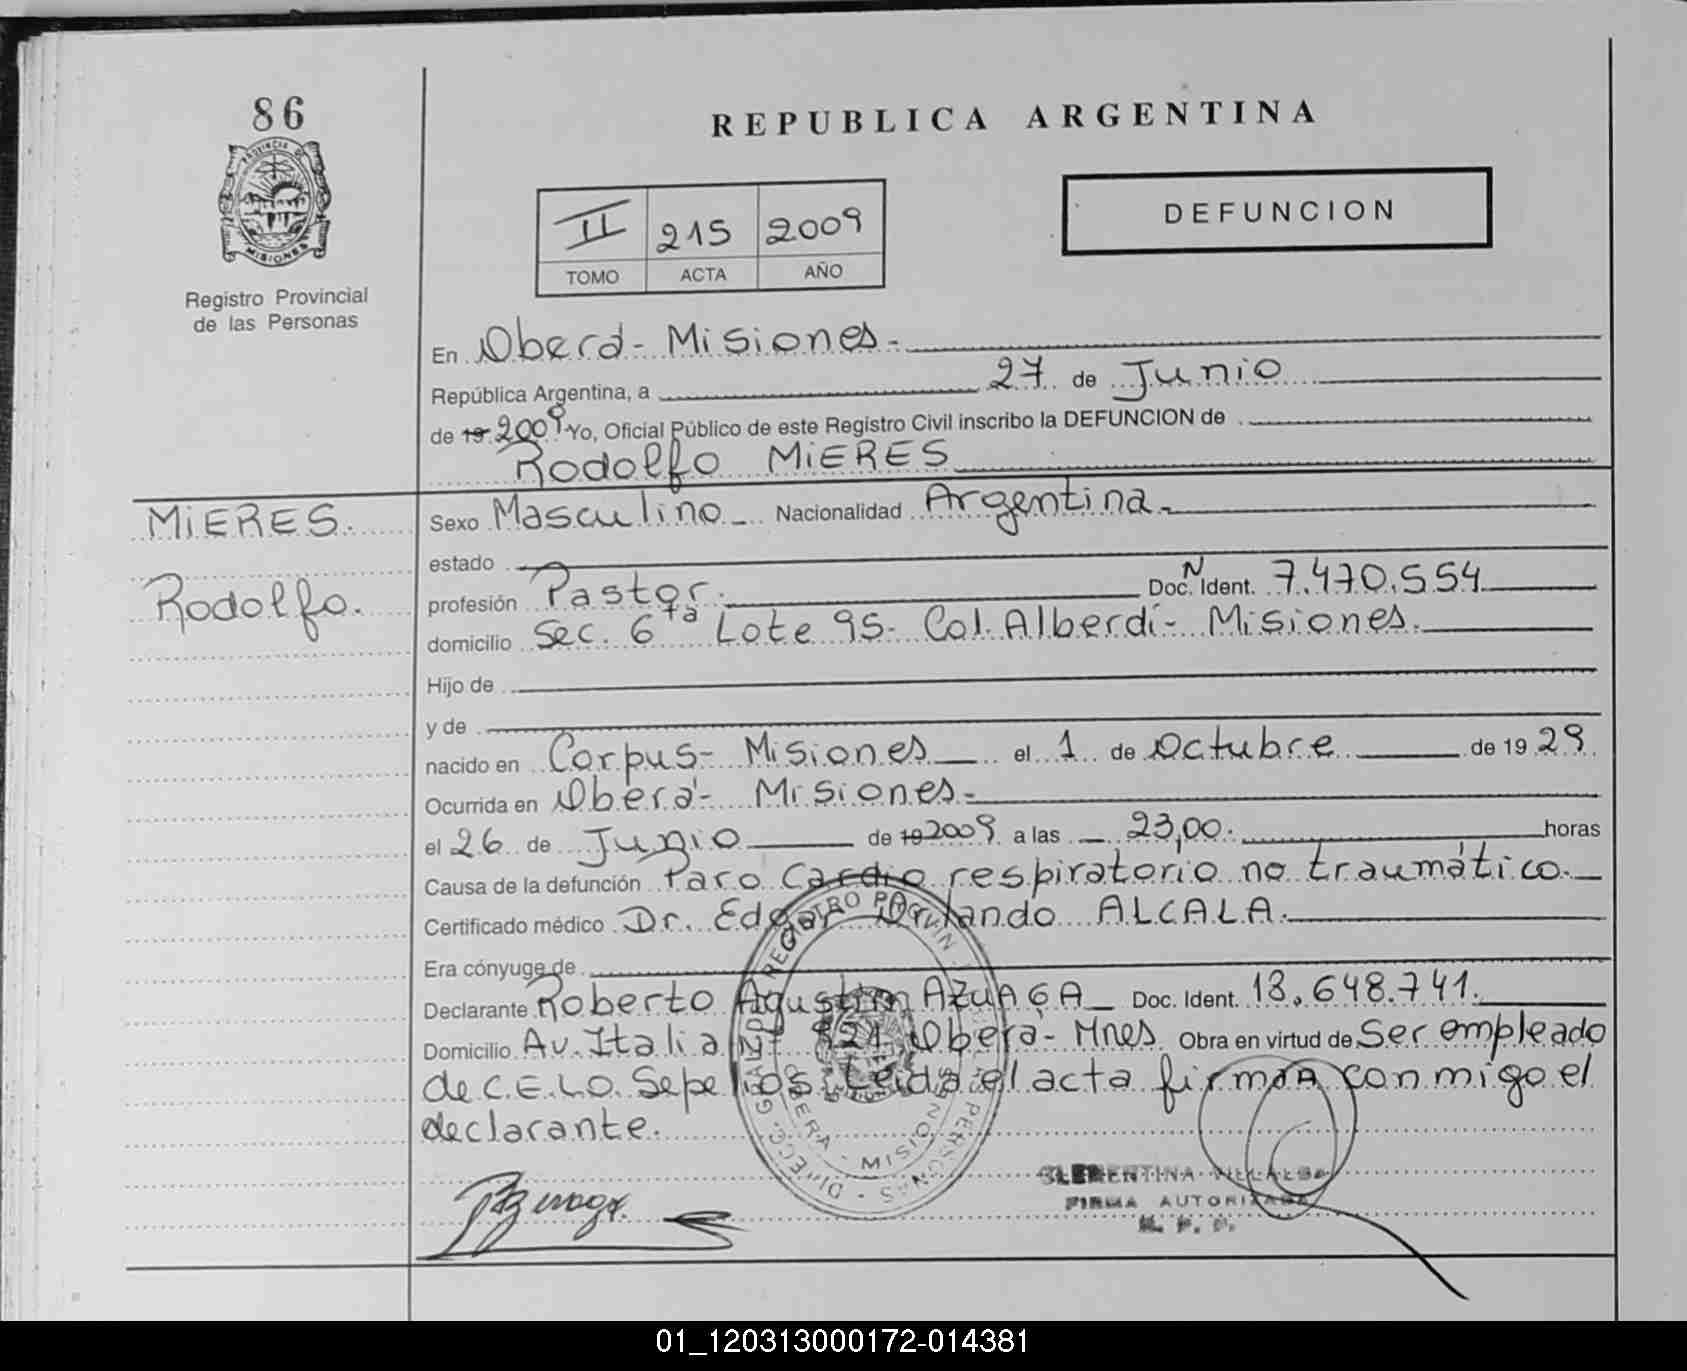 86
PROVINCIA DE
MISIONES
Registro Provincial
de las Personas
REPUBLICA ARGENTINA
II 215 2009
TOMO ACTA AÑO
DEFUNCION
En Oberá - Misiones.-
República Argentina, a 27 de Junio
de 19 2009 Yo, Oficial Público de este Registro Civil inscribo la DEFUNCION de
Rodolfo MIERES
MIERES.
Rodolfo.
Sexo Masculino Nacionalidad Argentina.
estado
profesión Pastor. Doc. N Ident. 7.470.554
domicilio Sec. 6ta Lote 95- Col. Alberdi- Misiones.
Hijo de
y de
nacido en Corpus- Misiones el 1 de Octubre de 19 29.
Ocurrida en Oberá- Misiones.-
el 26 de Junio de 19 2009 a las 23,00. horas
Causa de la defunción Paro Cardio respiratorio no traumático.
Certificado médico Dr. Edgar Orlando ALCALA.
Era cónyuge de
Declarante Roberto Agustin AZUAGA Doc. Ident. 13.648.741.
Domicilio Av. Italia 821 Oberá- Mnes. Obra en virtud de Ser empleado
de C.E.L.O. Sepelios. Leida el acta firman conmigo el
declarante.
CLEMENTINA VILLALBA
FIRMA AUTORIZADA
R. P. P.
01_120313000172-014381